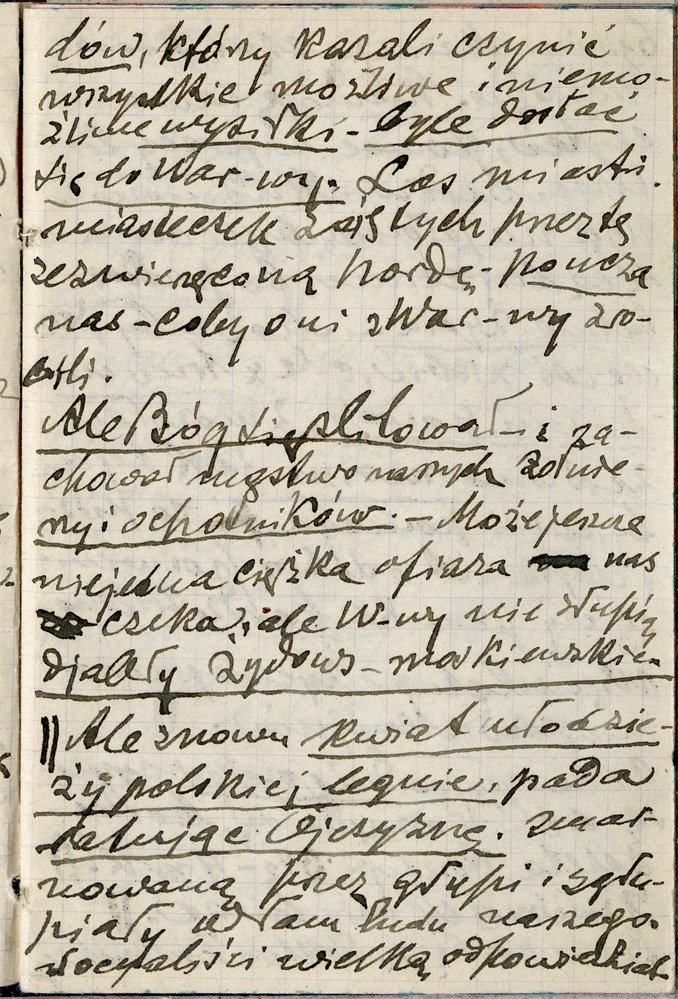 dów, który kazali czynić
wszystkie możliwe i niemo-
żliwe wysiłki - byle dostać
się do War-wy. Los miast i
miasteczek zajętych przez tę
zezwierzęconą hordę - poucza
nas - coby oni z War-wy zro-
bili.
Ale Bóg się zlitował - i za-
chował męstwo naszych żołnie-
rzy i ochotników. - Może jeszcze
niejedna ciężka ofiara nas
czeka, ale W-wy nie złupią
djabły żydows-moskiewskie.
|| Ale znowu kwiat młodzie-
ży polskiej legnie, pada
ratując Ojczyznę. zmar-
nowaną przez głupi i zgłu-
piały odłam ludu naszego.
socyaliści wielką odpowiedzial-